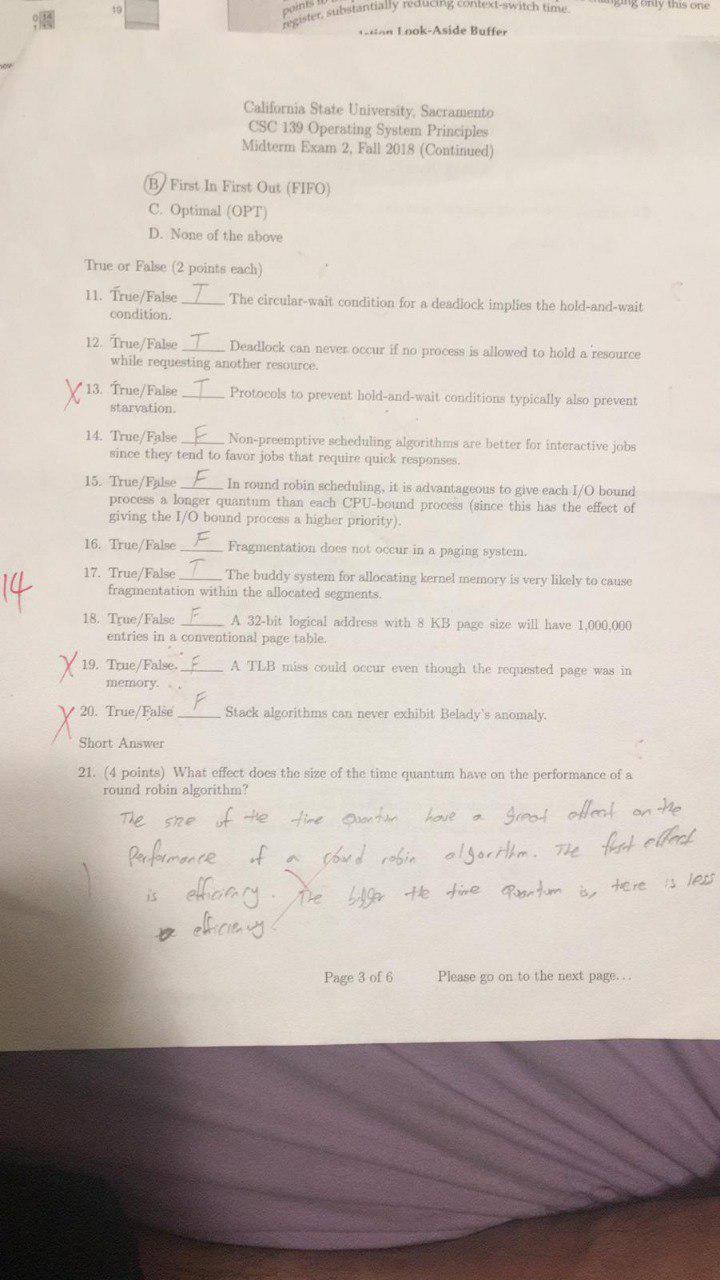 19
points
changing only this one
register, substantially reducing context-switch time.
Look-Aside Buffer
California State University, Sacramento
CSC 139 Operating System Principles
Midterm Exam 2, Fall 2018 (Continued)
B. First In First Out (FIFO)
C. Optimal (OPT)
D. None of the above
True or False (2 points each)
11. True/False T The circular-wait condition for a deadlock implies the hold-and-wait
condition.
12. True/False T Deadlock can never occur if no process is allowed to hold a resource
while requesting another resource.
X 13. True/False T Protocols to prevent hold-and-wait conditions typically also prevent
starvation.
14. True/False F Non-preemptive scheduling algorithms are better for interactive jobs
since they tend to favor jobs that require quick responses.
15. True/False F In round robin scheduling, it is advantageous to give each I/O bound
process a longer quantum than each CPU-bound process (since this has the effect of
giving the I/O bound process a higher priority).
16. True/False F Fragmentation does not occur in a paging system.
14
17. True/False T The buddy system for allocating kernel memory is very likely to cause
fragmentation within the allocated segments.
18. True/False F A 32-bit logical address with 8 KB page size will have 1,000,000
entries in a conventional page table.
X 19. True/False. F A TLB miss could occur even though the requested page was in
memory.
X 20. True/False F Stack algorithms can never exhibit Belady's anomaly.
Short Answer
21. (4 points) What effect does the size of the time quantum have on the performance of a
round robin algorithm?
The size of the time Quantum have a great effect on the
Performance of a round robin algorithm. The first effect
is efficiency. The bigger the time Quantum is, there is less
efficiency.
Page 3 of 6 Please go on to the next page...